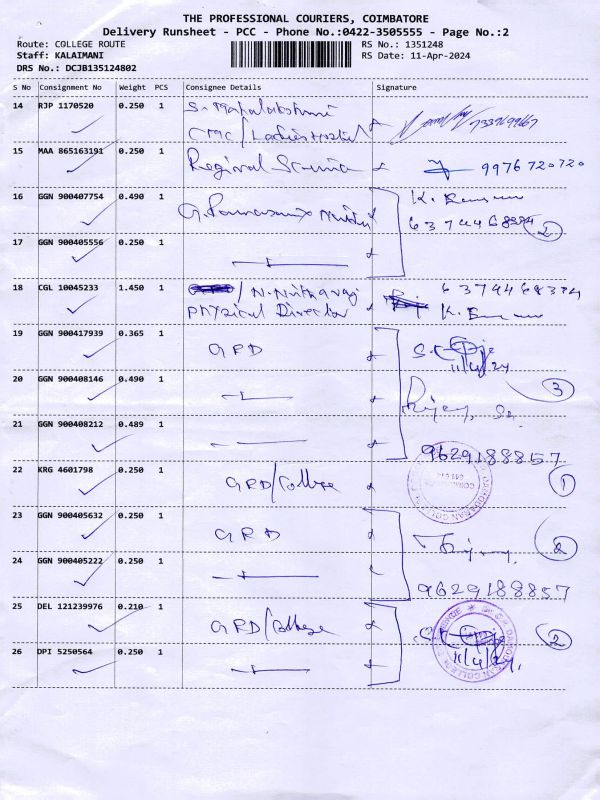 THE PROFESSIONAL COURIERS, COIMBATORE
Delivery Runsheet - PCC - Phone No.:0422-3505555 - Page No.:2
Route: COLLEGE ROUTE
RS No.: 1351248
Staff: KALAIMANI
RS Date: 11-Apr-2024
DRS No.: DCJB135124802
S No Consignment No Weight PCS Consignee Details Signature
14 RJP 1170520 0.250 1
CMC/Ladies Hostel
15 MAA 865163191 0.250 1 Regional 9976720720
16 GGN 900407754 0.490 1
2
17 GGN 900405556 0.250 1
18 CGL 10045233 1.450 1
Physical Director
19 GGN 900417939 0.365 1 GRD
11/4/24
20 GGN 900408146 0.490 1
3
21 GGN 900408212 0.489 1
9629188857
22 KRG 4601798 0.250 1 GRD/College 1
23 GGN 900405632 0.250 1 GRD
2
24 GGN 900405222 0.250 1
9629188857
25 DEL 121239976 0.210 1 GRD/College 2
26 DPI 5250564 0.250 1 11/4/24